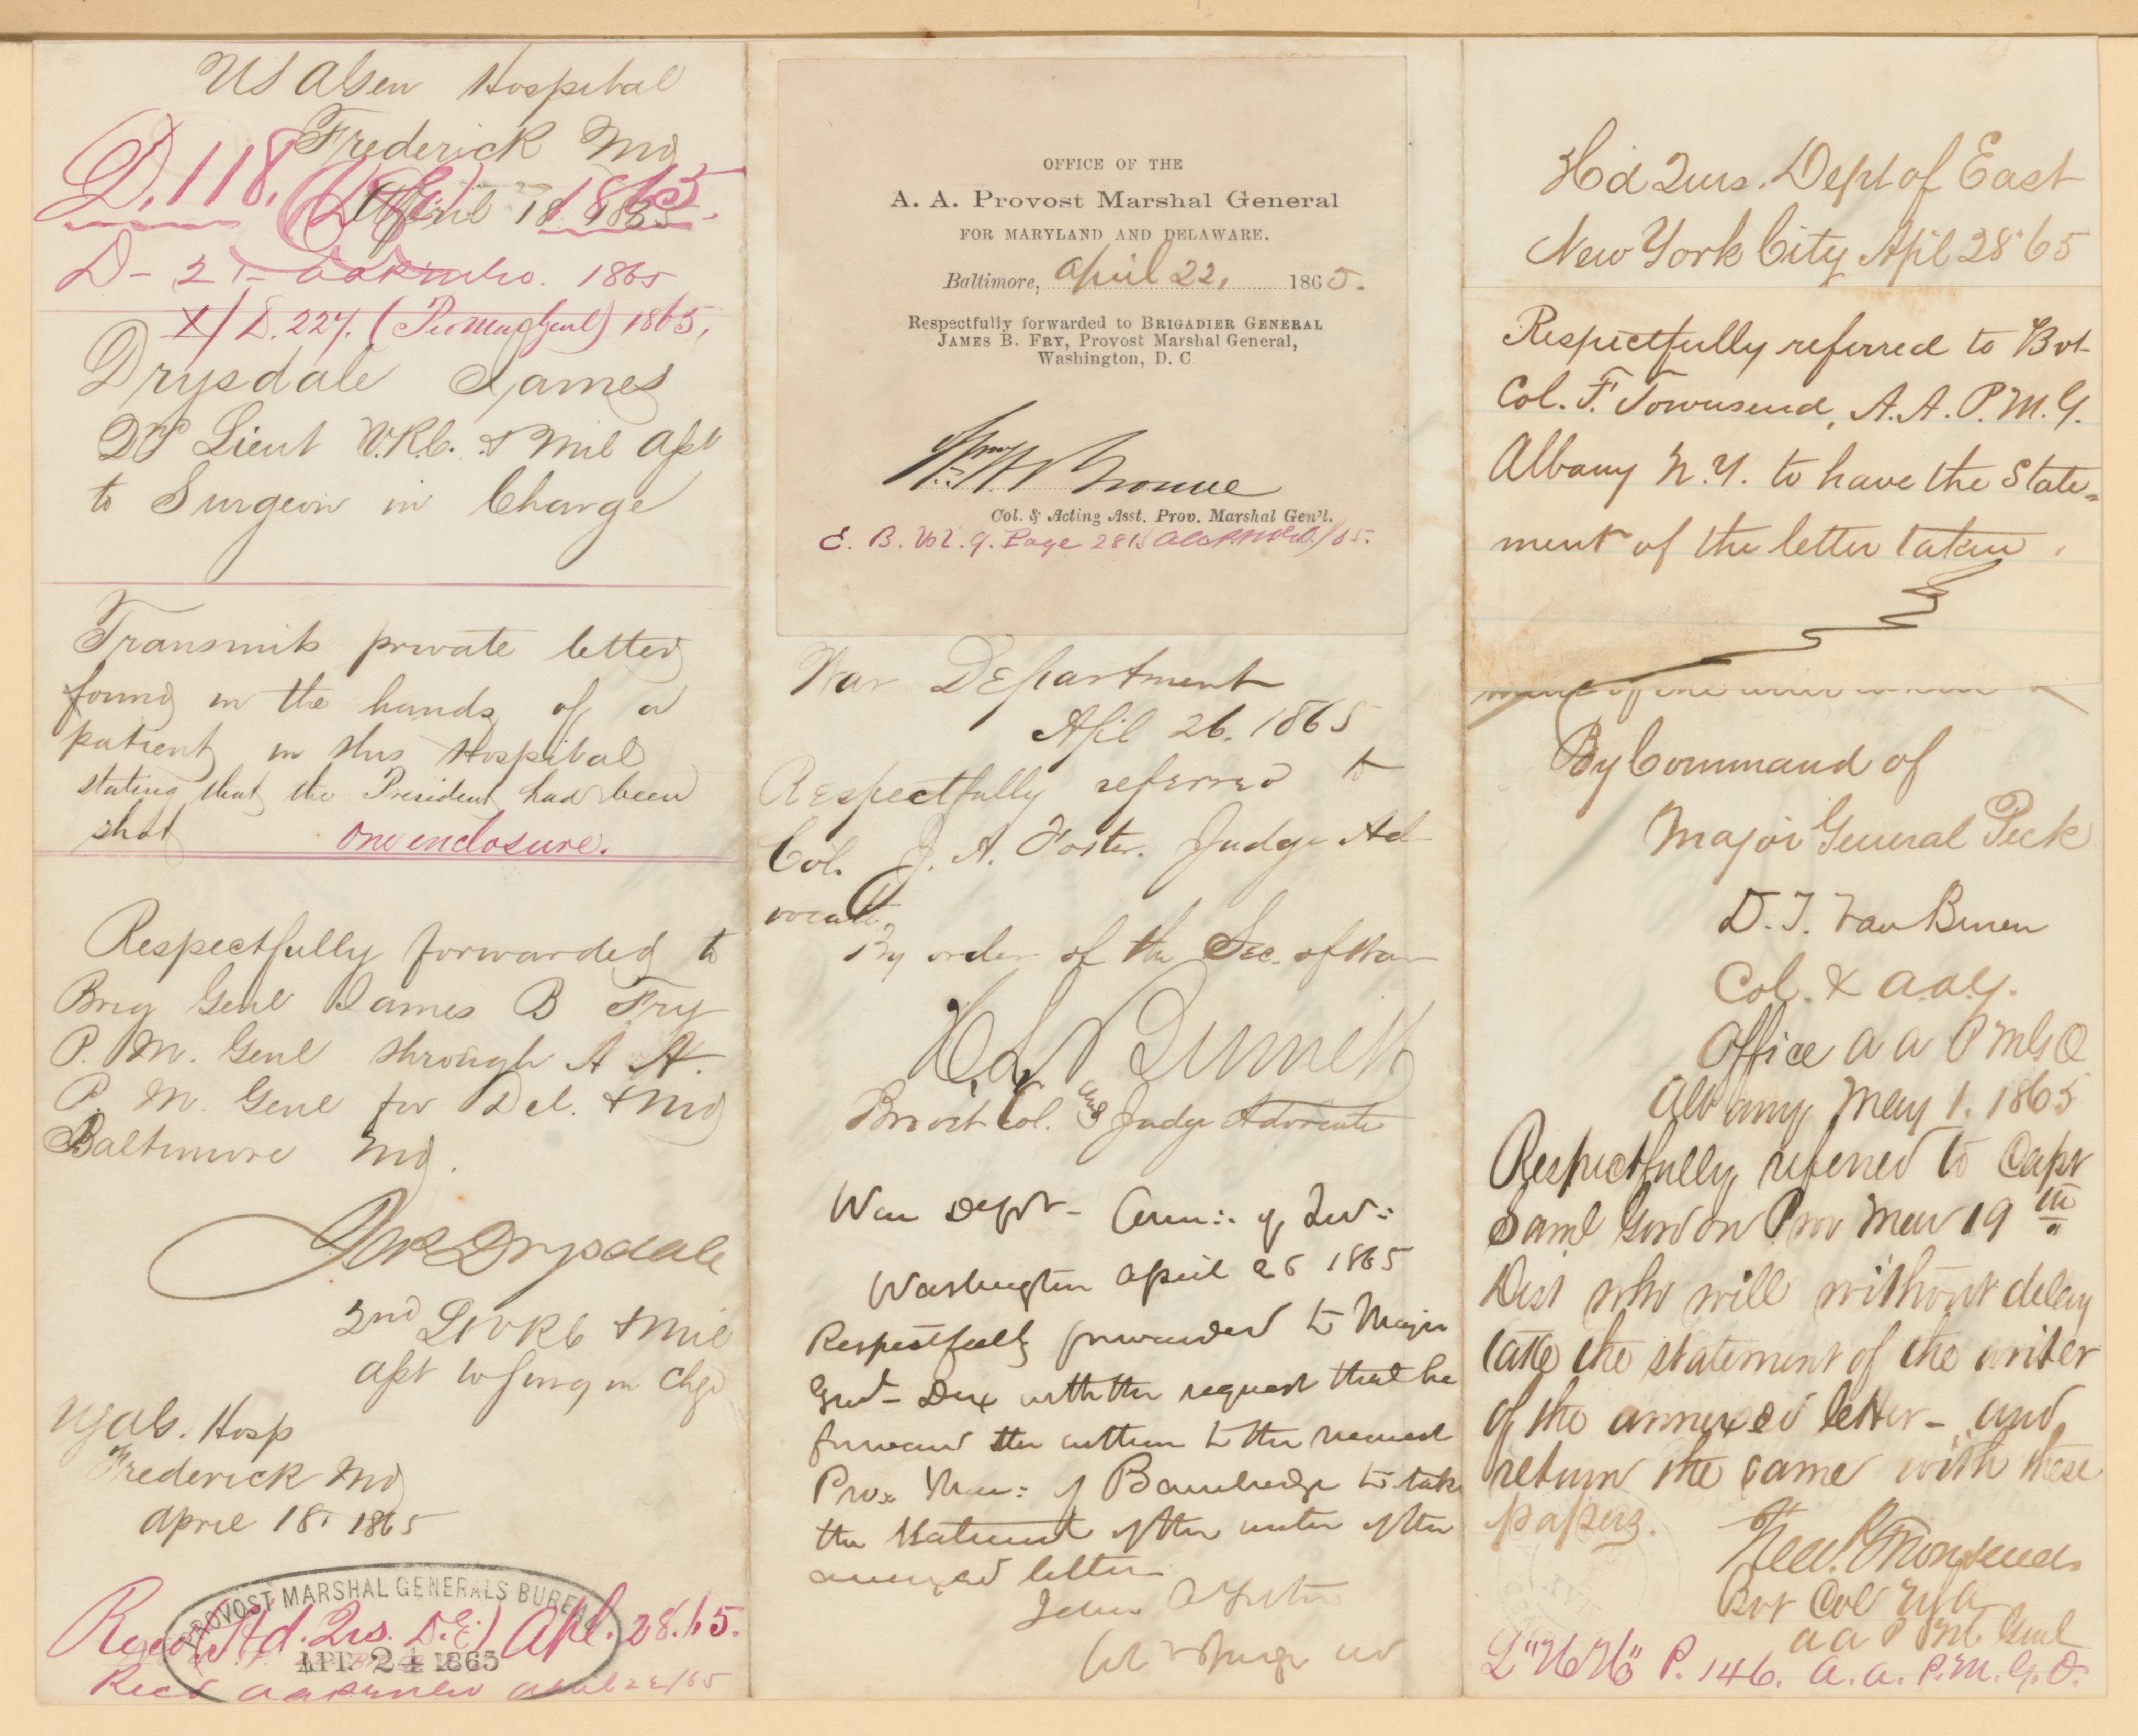 US A Gen Hospital
Frederick Md
D. 118. (D.E.) 1865.
April 18 1865
D - 21 - 1865
X/ D. 227. (Pro Mar Genl) 1865.
Drysdale James
2d Lieut V.R.C. & Mil Asst
to Surgeon in Charge
Transmits private letter
found in the hands of a
patient in this Hospital
stating that the President had been
shot one enclosure.
Respectfully forwarded to
Brig Genl James B Fry
P. M. Genl through A A.
P. M. Genl for Del. & Md
Baltimore Md.
Jas Drysdale
2nd Lt VRC & Mil
asst to Surg in Chge
USAG. Hosp
Frederick Md
April 18, 1865
PROVOST MARSHAL GENERALS BUREAU
Recd (Hd. Qrs. D.E.) Apl. 28. 65.
APR 24 1865
Recd
OFFICE OF THE
A. A. Provost Marshal General
FOR MARYLAND AND DELAWARE.
Baltimore, April 22, 1865.
Respectfully forwarded to BRIGADIER GENERAL
JAMES B. FRY, Provost Marshal General,
Washington, D. C.
Col. & Acting Asst. Prov. Marshal Gen'l.
E. B. Vol. 9. Page 281. /65.
War Department
Apil 26. 1865
Respectfully referred to
Col. J. A. Foster. Judge Ad-
vocate.
By order of the Sec. of War
H. L. Burnett
Brevt Col. and Judge Advocate
War Dept-
Washington April 26 1865
Respectfully forwarded to Major
Genl- Dix with the request that he
forward the within to the nearest
Prov. Mar: of Bainbridge to take
the Statement of the writer of the
annexed letter
John A Foster
Hd Qurs. Dept of East
New York City Apl 28" 65
Respectfully referred to Bvt-
Col. F. Townsend, A. A. P. M. G.
Albany N. Y. to have the State-
ment of the letter taken.
By Command of
Major General Peck
D. T. Van Buren
Col. & A.A.G.
Office A A P M G O
Albany, May 1. 1865
Respectfully referred to Capt
Saml Gordon Prov Mar 19th
Dist who will without delay
take the statement of the writer
of the annexed letter - and
return the same with these
papers.
Fred. Townsend
Bvt Col USA
A A P M Genl
P. 146. A. A. P. M. G. O.